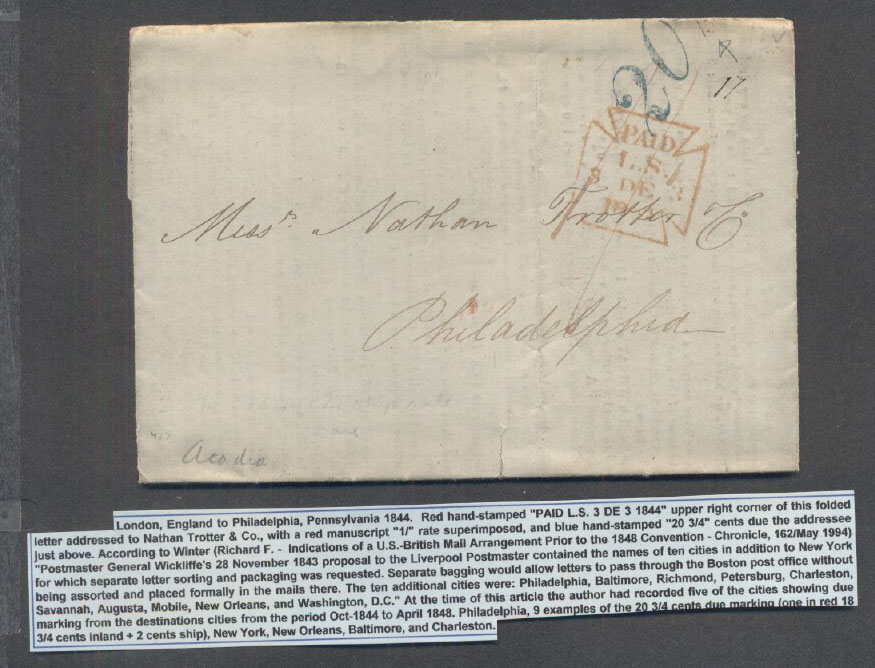 20
17
PAID
L.S.
3 DE 3
Mess.rs Nathan Trotter & Co
Philadelphia
Acadia
London, England to Philadelphia, Pennsylvania 1844. Red hand-stamped "PAID L.S. 3 DE 3 1844" upper right corner of this folded
letter addressed to Nathan Trotter & Co., with a red manuscript "1/" rate superimposed, and blue hand-stamped "20 3/4" cents due the addressee
just above. According to Winter (Richard F. - Indications of a U.S.-British Mail Arrangement Prior to the 1848 Convention - Chronicle, 162/May 1994)
"Postmaster General Wickliffe's 28 November 1843 proposal to the Liverpool Postmaster contained the names of ten cities in addition to New York
for which separate letter sorting and packaging was requested. Separate bagging would allow letters to pass through the Boston post office without
being assorted and placed formally in the mails there. The ten additional cities were: Philadelphia, Baltimore, Richmond, Petersburg, Charleston,
Savannah, Augusta, Mobile, New Orleans, and Washington, D.C." At the time of this article the author had recorded five of the cities showing due
marking from the destinations cities from the period Oct-1844 to April 1848. Philadelphia, 9 examples of the 20 3/4 cents due marking (one in red 18
3/4 cents inland + 2 cents ship), New York, New Orleans, Baltimore, and Charleston.